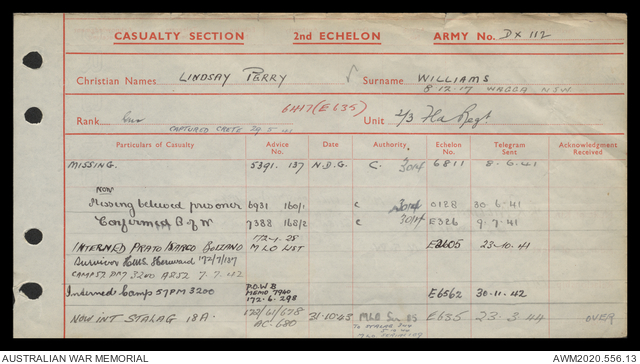 CASUALTY SECTION 2nd ECHELON ARMY No. DX 112
Christian Names LINDSAY PERRY Surname WILLIAMS
8-12-17 WAGGA NSW
6A17 (E635)
Rank Gnr Unit 2/3 Fld Regt
CAPTURED CRETE 29 5 41
Particulars of Casualty Advice No. Date Authority Echelon No. Telegram Sent Acknowledgment Received
MISSING. 5391 137 N.D.G. C. 3014 6811 8-6-41
NOW
Missing believed prisoner 6931 160/1 C 3014 0128 30-6-41
Confirmed P of W 7388 168/2 C 3014 E326 9-7-41
INTERNED PRATO ISARCO BOLZANO 172-1-25 M LO LIST E2605 23-10-41
Survivor 172/7/137
CAMP 57 PM 3200 7.7.42
Interned Camp 57 PM 3200 P.O.W B MEMO 7940 172-6-298 E6562 30-11-42
NOW INT STALAG 18A. 172/61/678 AC 680 31.10.43 E635 23-3-44 OVER
AUSTRALIAN WAR MEMORIAL AWM2020.556.13